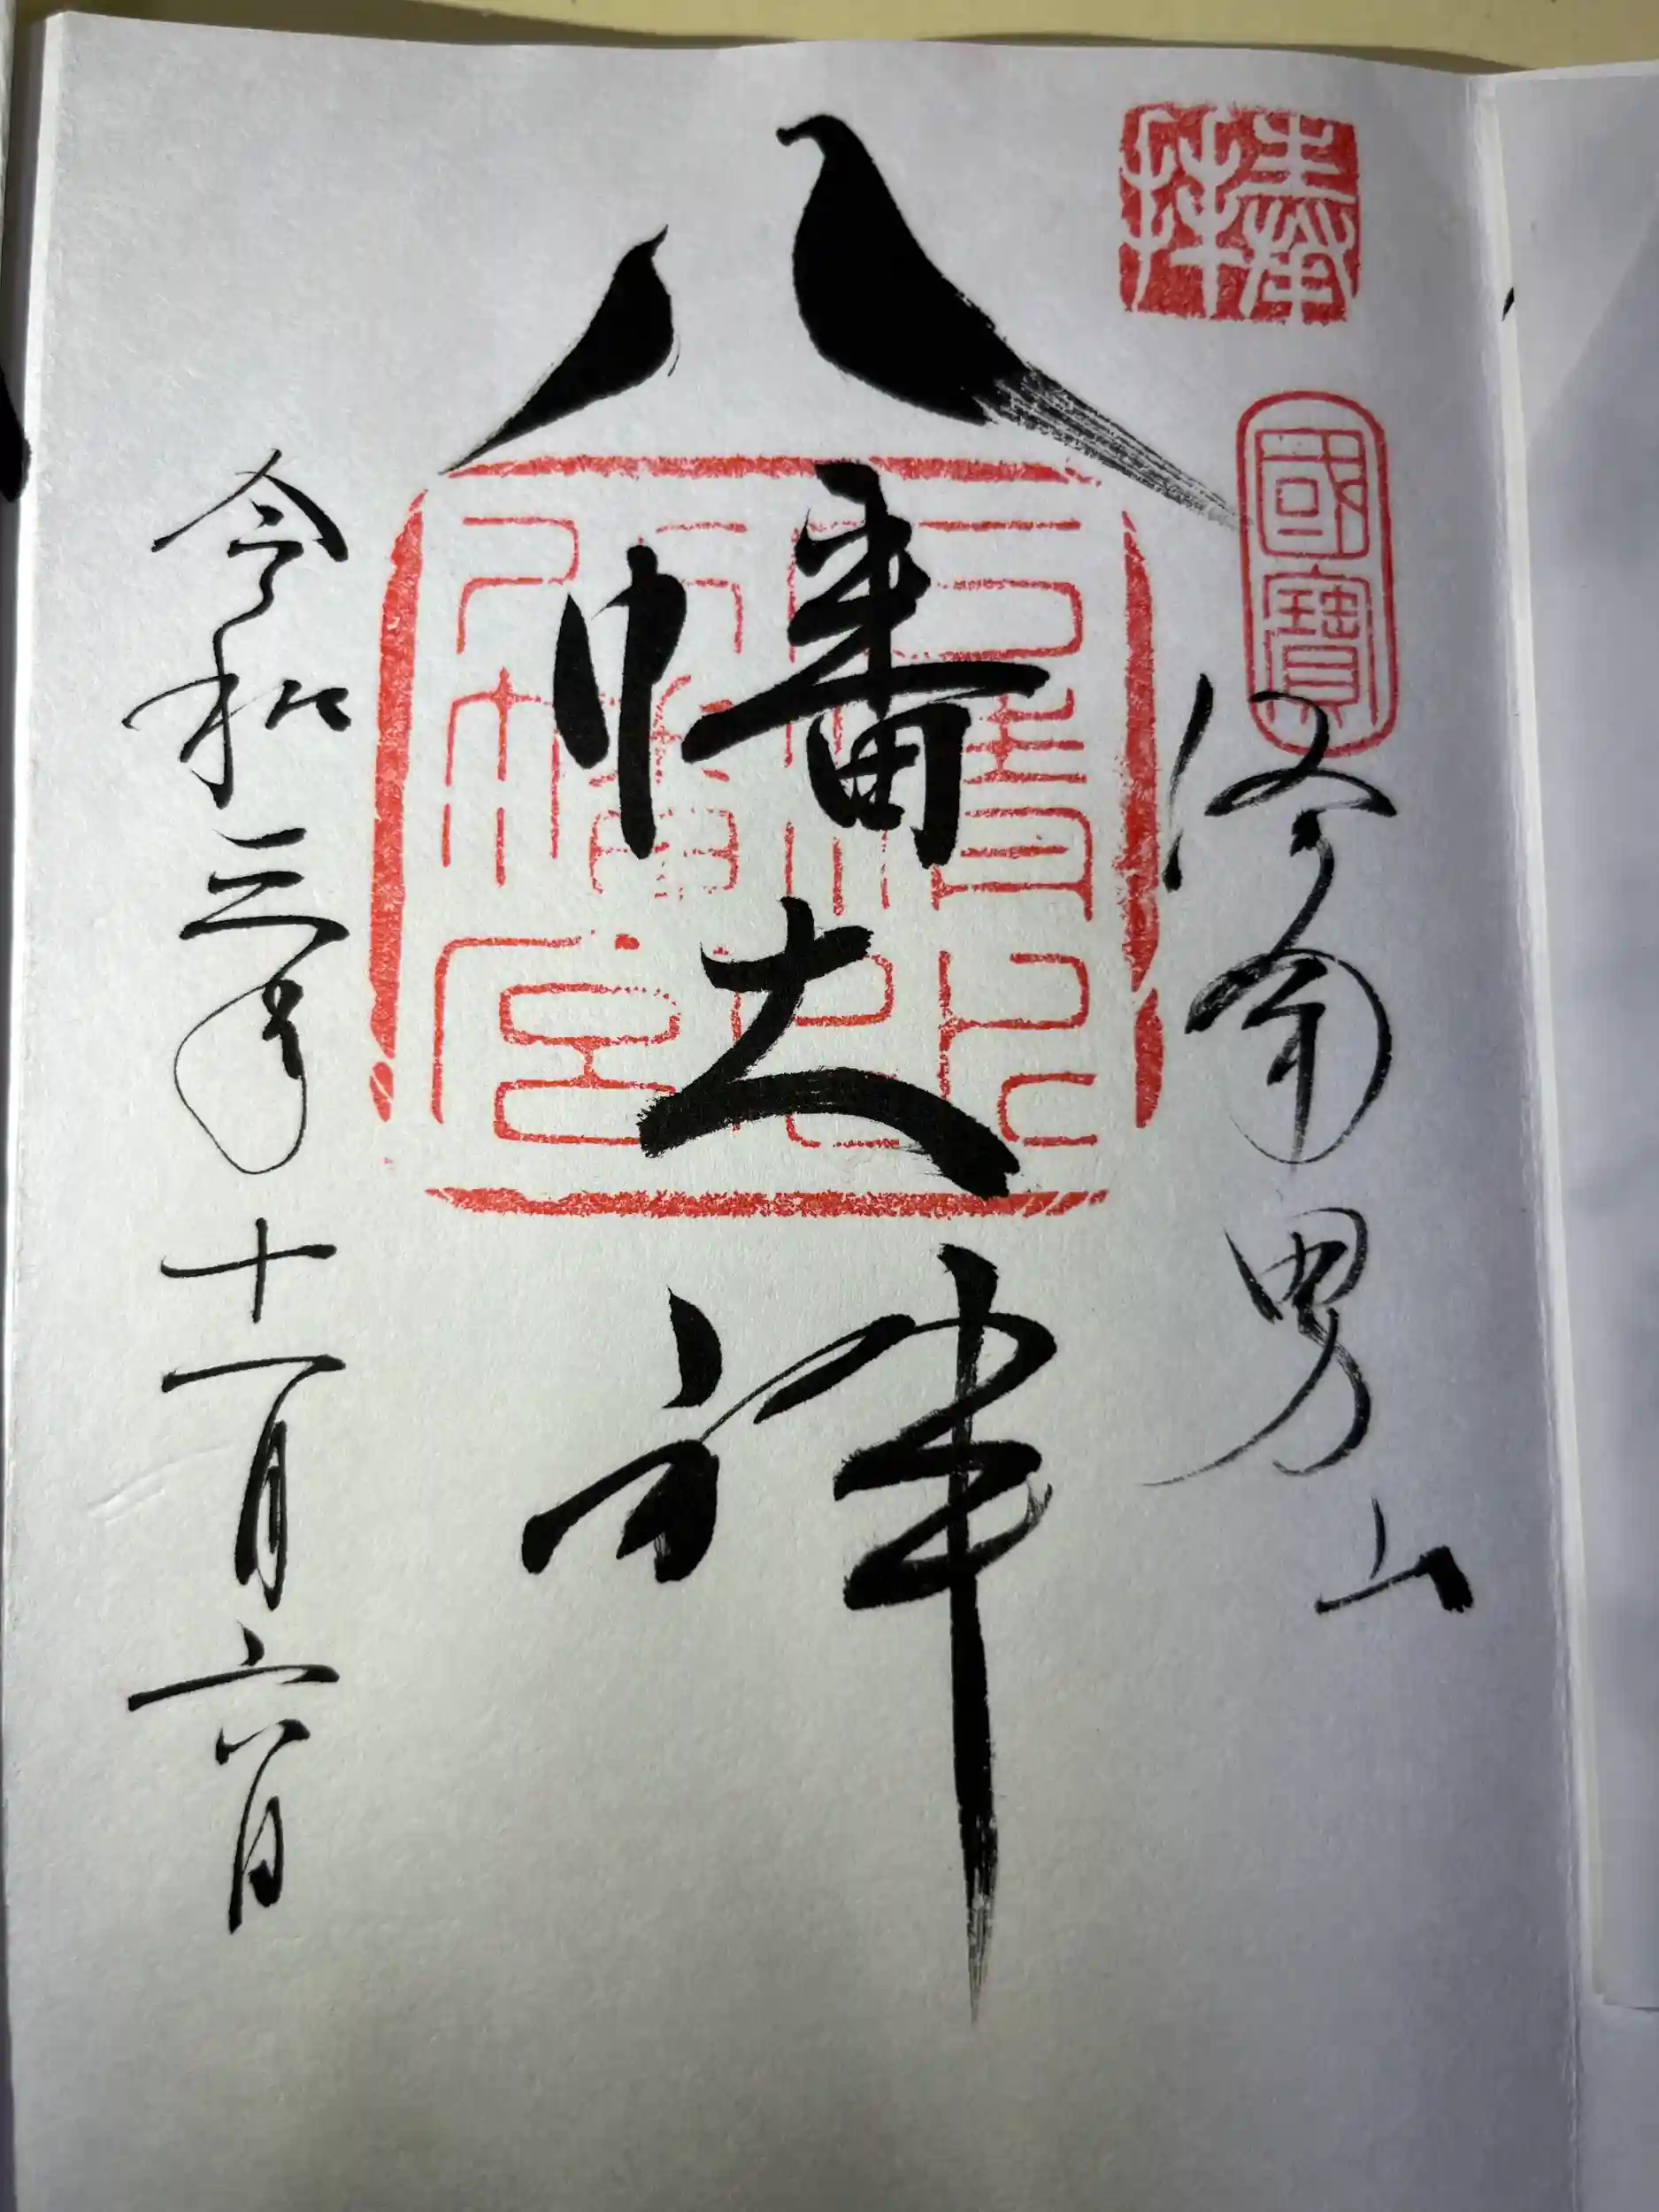 奉拝
國寶
洛南男山
八幡大神
石清水八幡宮
令和三年十一月六日